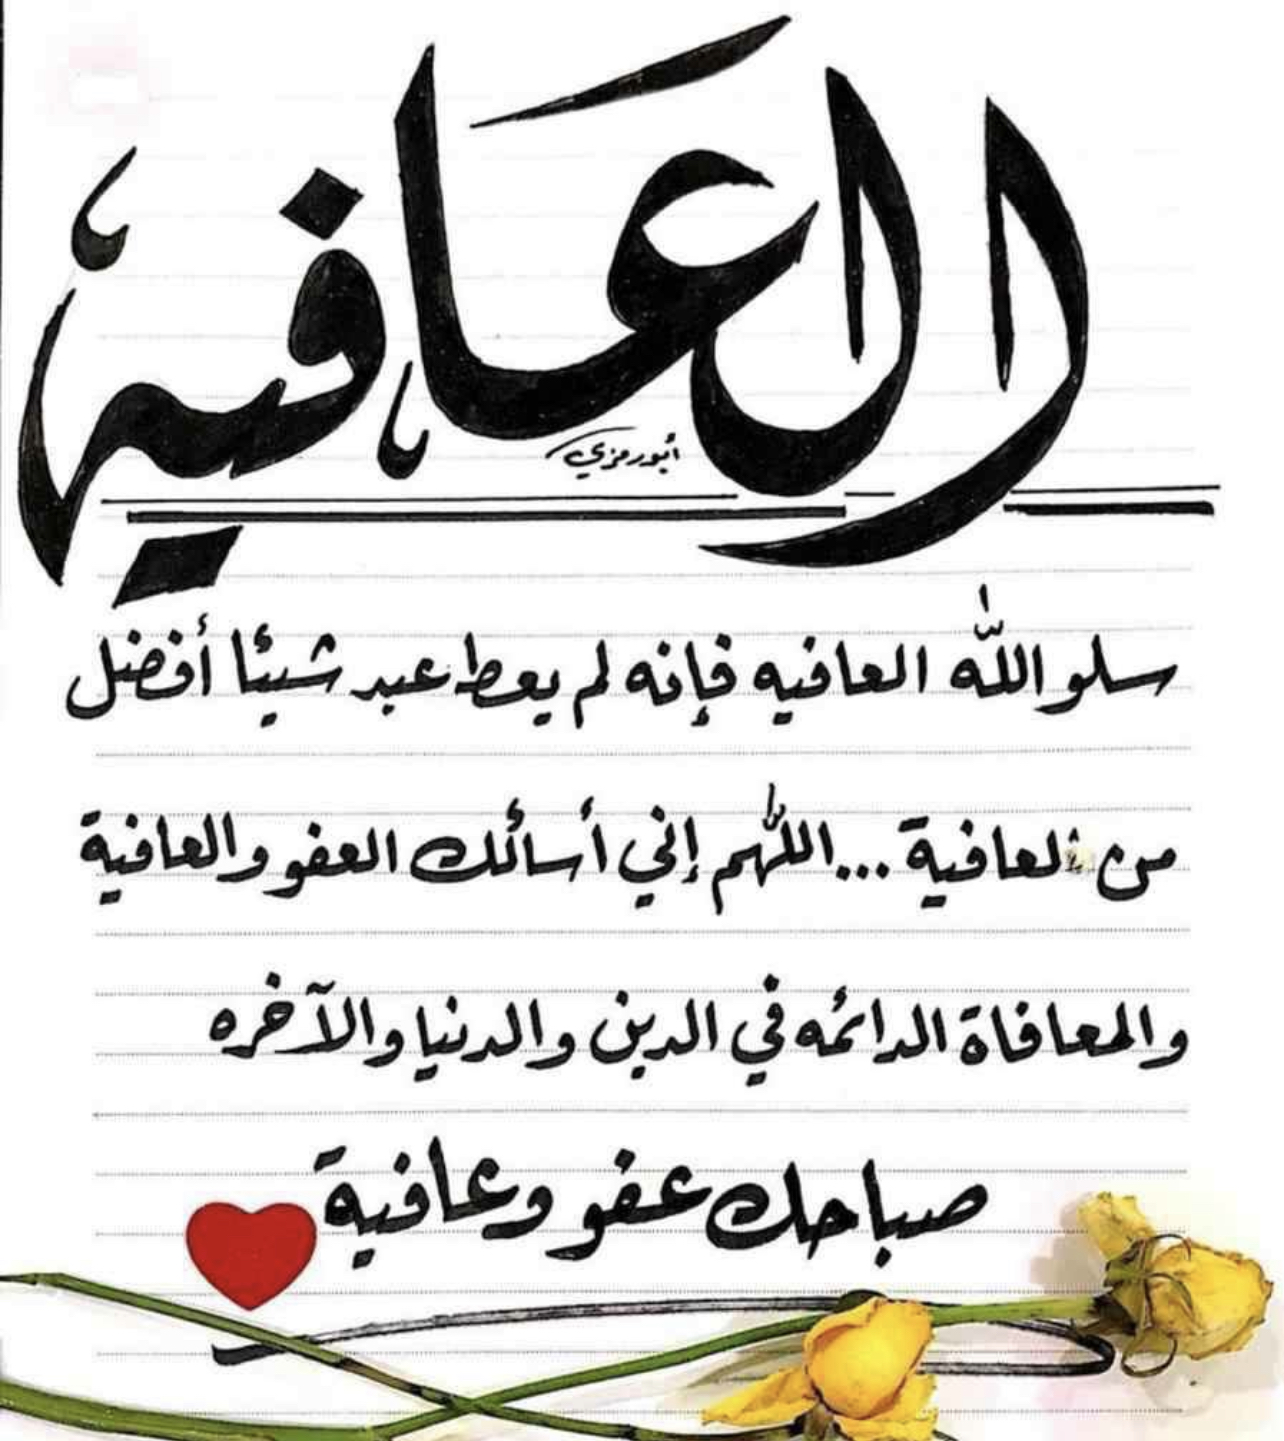 العافية
أبورمزي
سلو الله العافيه فإنه لم يعط عبد شيئا أفضل
من العافية ... اللهم إني أسائلك العفو والعافية
والمعافاة الدائمه في الدين والدنيا والآخره
صباحك عفو وعافية